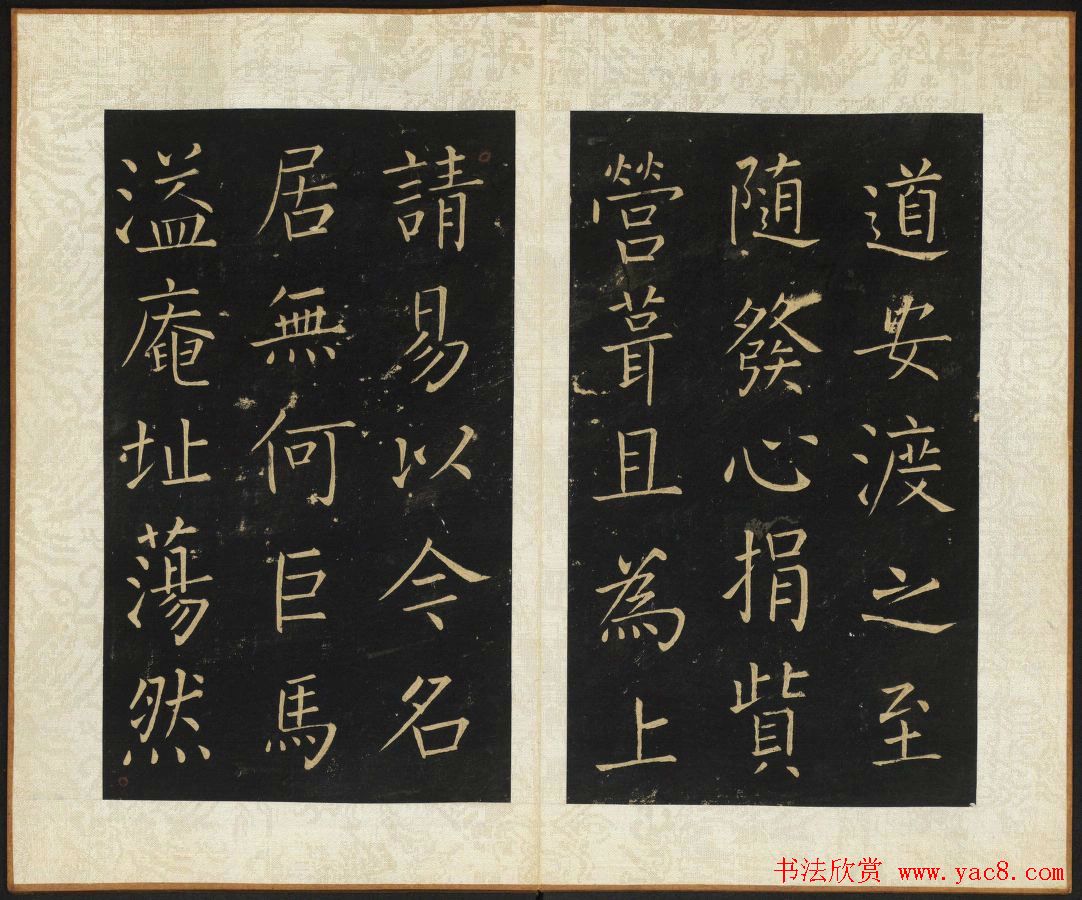 道安渡之至
随發心捐貲
營葺且為上
請易以今名
居無何巨馬
溢庵址蕩然
书法欣赏 www.yac8.com